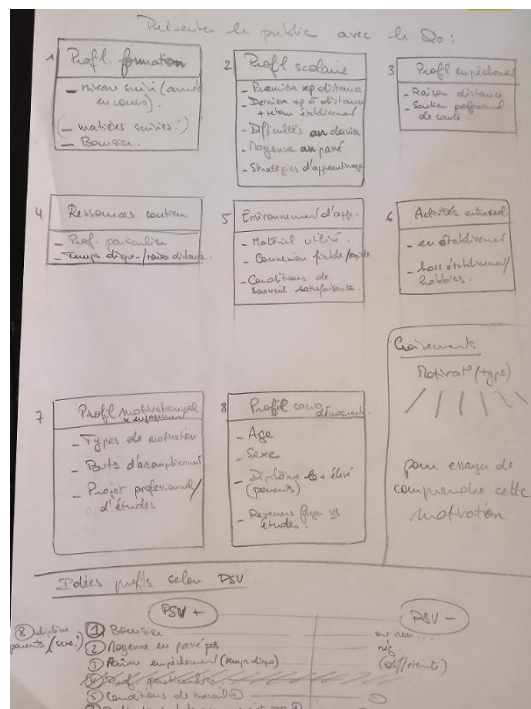 Présenter le public avec le Qo :
1 Profil formation
- niveau suivi (année
en cours)
(- matières suivies ?)
- Boursier.
2 Profil scolaire
- Première xp distance
Dernière xp à distance
+ retour établissement
- Difficultés an dernier
- Moyenne an passé
- Stratégies d'apprentissage
3 Profil empêchement
- Raison distance
- Soutien professionnel
de santé.
4 Ressources soutien
- Prof. particulier
- Temps dispo / raison distance
5 Environnement d'app.
- Matériel utilisé.
- Connexion fiable/rapide
- Conditions de
travail satisfaisantes.
6 Activités extrascol.
- en établissement
- hors établissement/
hobbies.
7 Profil motivationnel
- Types de motivation
- Buts d'accomplissement
- Projet professionnel/
d'études
8 Profil socio
démograph.
- Age
- Sexe
- Diplôme le + élevé
(parents)
études ?
Croisements
Motivat° (type)
pour essayer de
comprendre cette
motivation
Idées profils selon PSV
PSV +
PSV -
8 diplôme
parents / (sexe ?)
1 Boursier
ou non...
2 Moyenne en passé
3 Raison empêchement (temps dispo)
(différents)
5 Conditions de travail